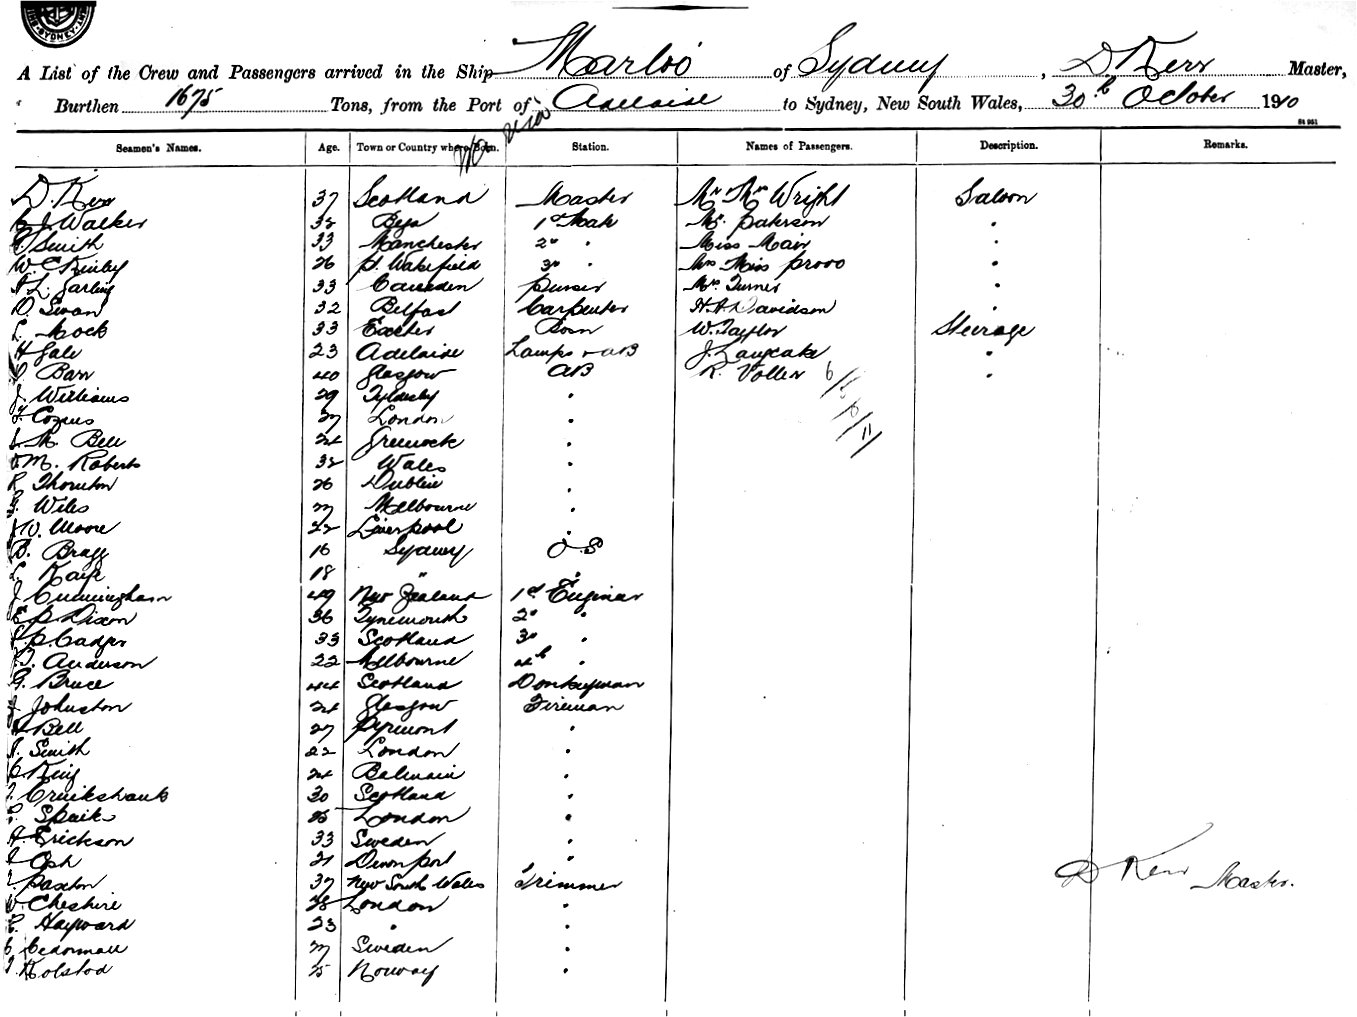 SYDNEY
A List of the Crew and Passengers arrived in the Ship Marloo of Sydney, D Kerr Master,
Burthen 1675 Tons, from the Port of Adelaide to Sydney, New South Wales, 30th October 1910
via
St 951
Seamen's Names. Age. Town or Country where Born. Station. Names of Passengers. Description. Remarks.
D. Kerr 37 Scotland Master Mr Mrs Wright Saloon
J Walker 32 1st Mate Mr. Paterson "
Smith 33 Manchester 2nd " Miss Mair "
W. C Kinley 26 P. Wakefield 3rd " Mrs Miss Provo "
L. Garling 33 Camden Purser Mrs Turner "
D. Swan 32 Belfast Carpenter H. A. Davidson "
L. Mock 33 Exeter Bosn W. Taylor Steerage
H Gale 23 Adelaide Lamps & AB J. Langcake "
Barr 40 Glasgow AB R. Voller "
J. Williams 29 Tyldesly "
Cozens 27 London "
M Bell 24 Greenock "
M. Roberts 32 Wales "
R Thornton 26 Dublin "
Wiles 27 Melbourne "
W. Moore 22 Liverpool "
B. Bragg 16 Sydney O.S
L. Kaye 18 " "
J Cunningham 49 New Zealand 1st Engineer
E P Dixon 36 Tynemouth 2nd "
P. Badger 33 Scotland 3rd "
J. Anderson 22 Melbourne 4th "
G. Bruce 44 Scotland Donkeyman
J Johnston 24 Glasgow Fireman
H Bell 27 Pyrmont "
J. Smith 22 London "
C King 24 Balmain "
Cruikshank 30 Scotland "
Spaik London "
H. Erickson 33 Sweden "
Osh 21 Devonport "
Paxton 37 New South Wales Trimmer
D Kerr Master.
W. Cheshire 28 London "
Hayward 23 " "
Cedermall 27 Sweden "
Kolstod 25 Norway "